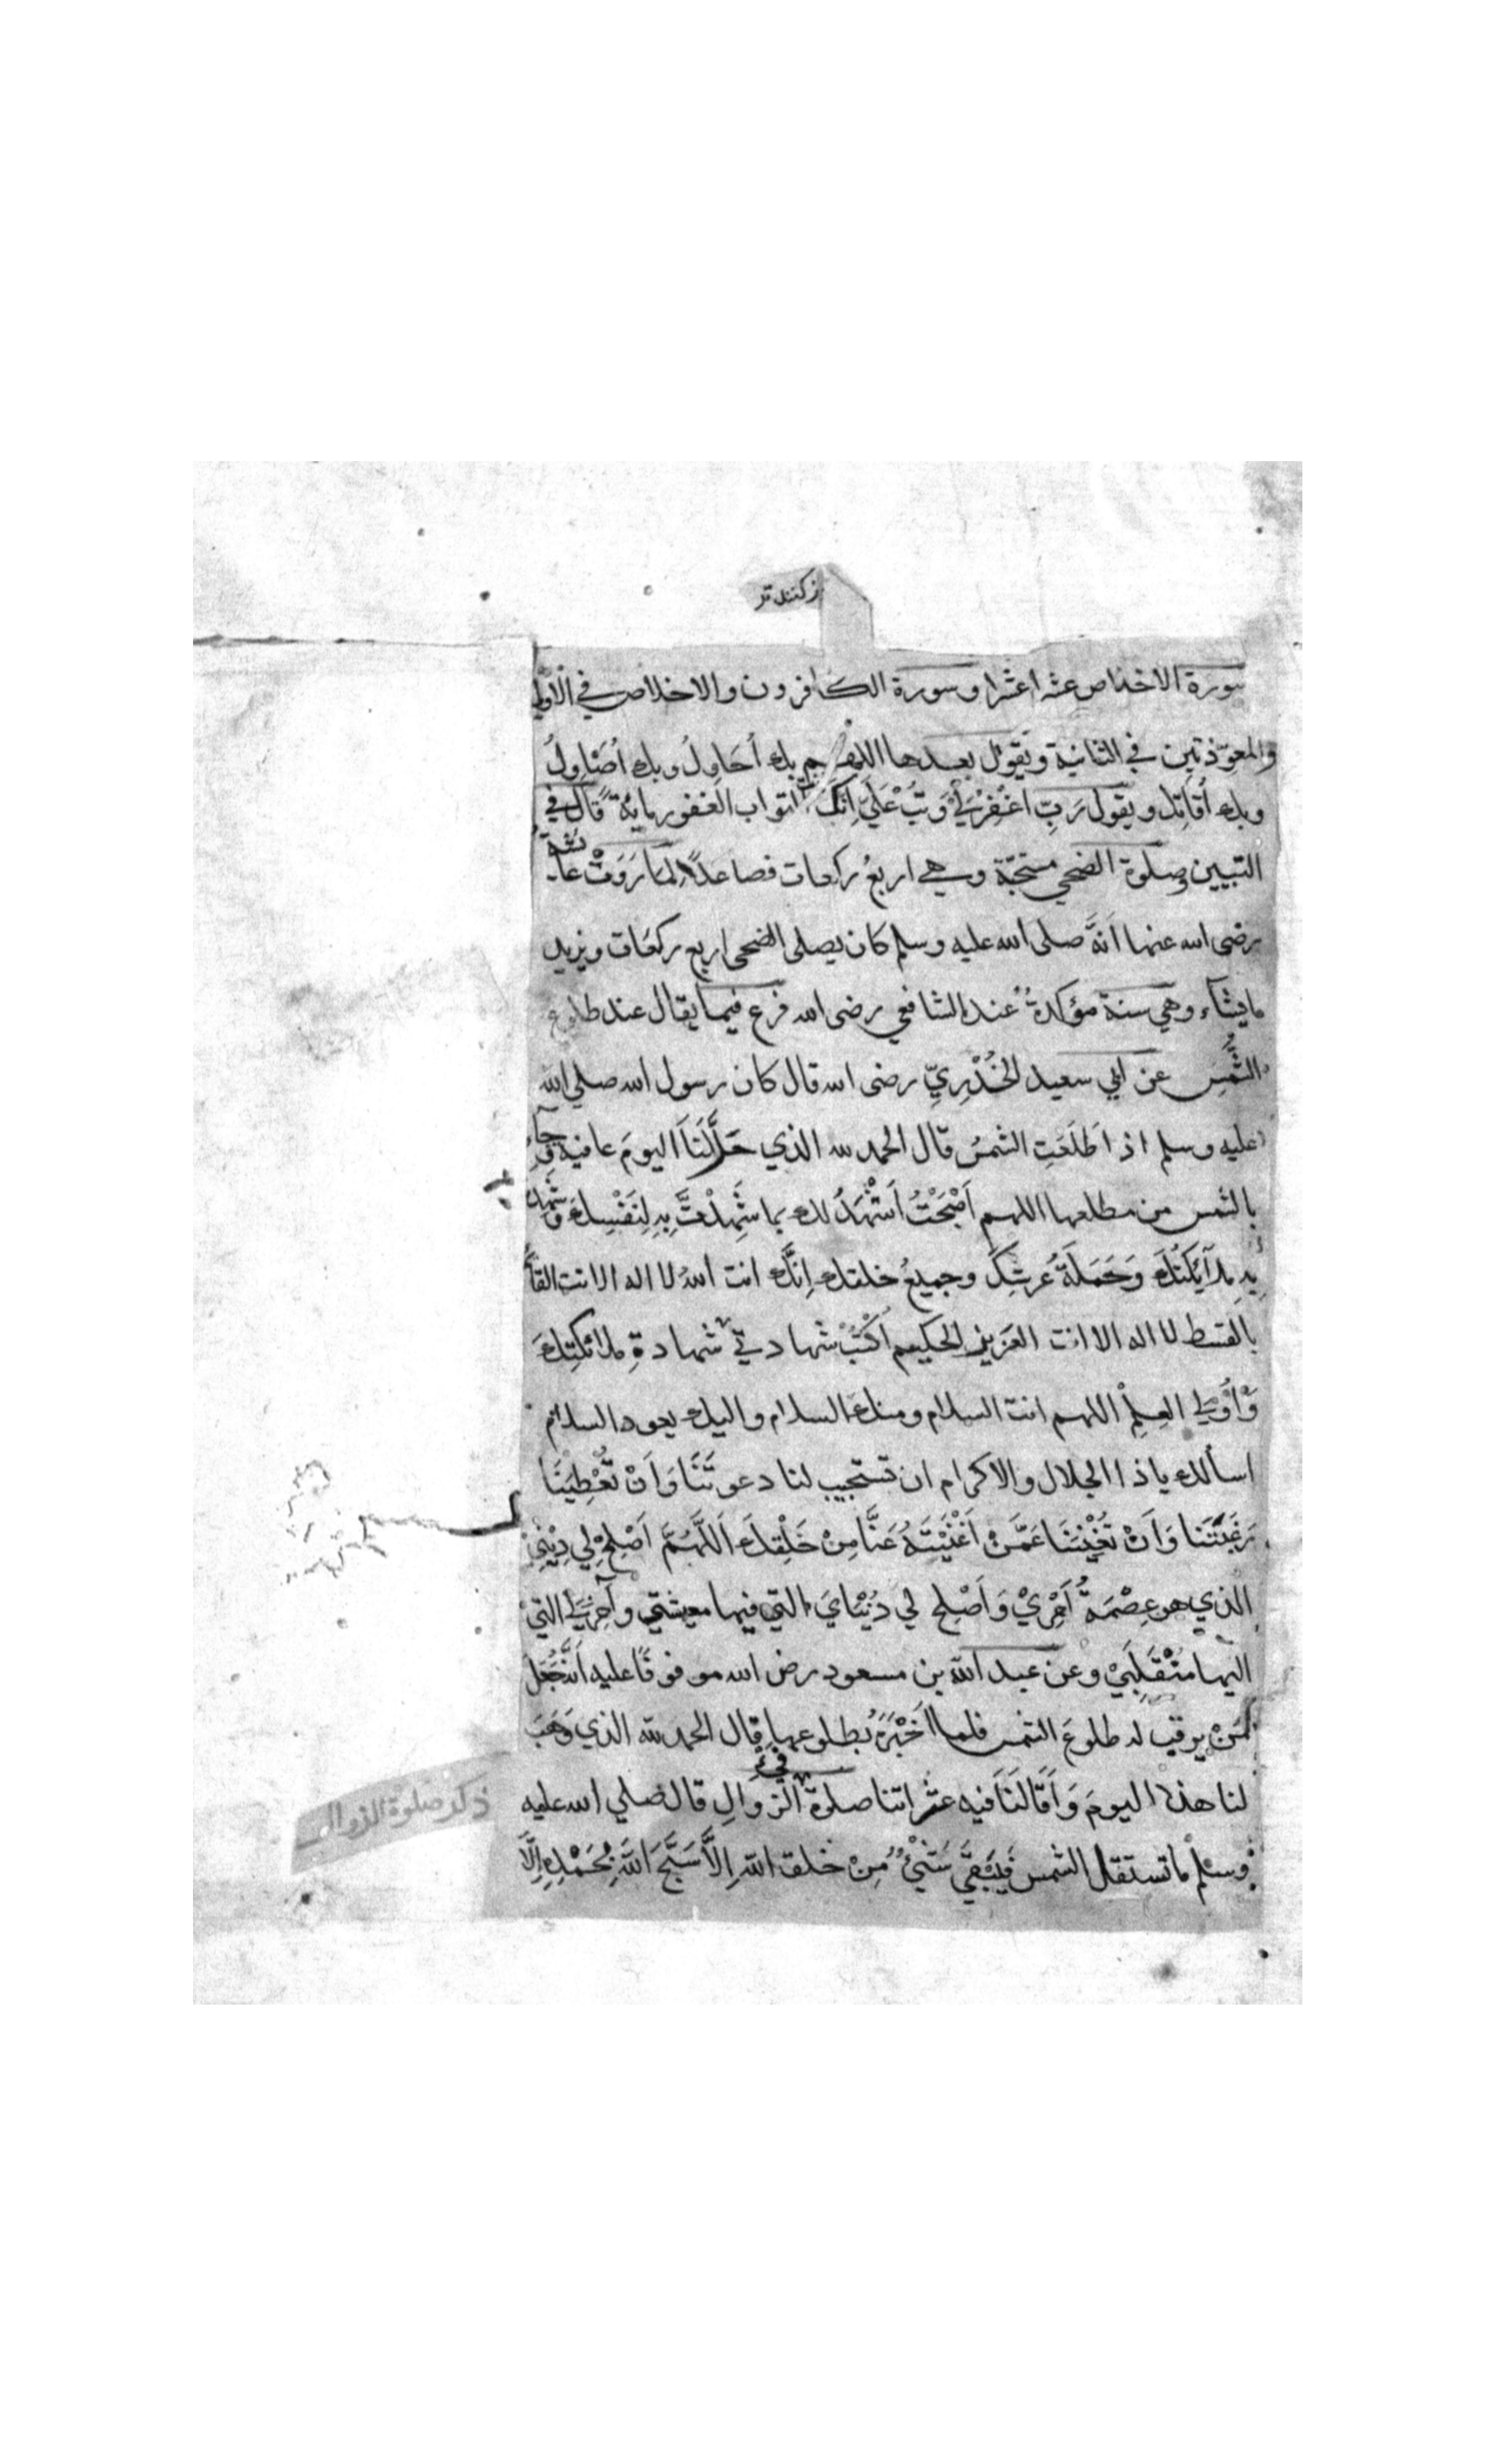 سورة الاخلاص عشرا عشرا وسورة الكافرون والاخلاص في الاولي
والمعوّذتين في الثانية ويقول بعدها اللهم بك أُحَاوِلُ وبك أُصَاوِلُ
وبك أُقَاتِل ويقول رَبِّ اغْفِرْلِي وَتُبْ عَلَيَّ اِنَّكَ انت التواب الغفور ماية قال في
التبيين وصلوة الضحي مستحبّة وهي اربعُ ركعات فصاعدًا لِمَا رَوَتْ عائشة
رضي الله عنها اَنَّهُ صلى الله عليه وسلم كان يصلى الضحى اربع ركعات ويزيد
ما يشآء وهي سنة مؤكدةٌ عند الشافعي رضى الله فرع فيما يقال عند طلوع
الشَّمْسِ عن ابي سعيد الخُدْرِيِّ رضى الله قال كان رسول الله صلي الله
عليه وسلم اذا طَلَعَتِ الشمسُ قال الحمد لله الذي جَلَّلَنَا اليومَ عافية وَجآء
بالشمس من مطلعها اللهم اَصْبَحْتُ اَشْهَدُ لك بما شَهِدْتَ بِهِ لِنَفْسِكَ وَشَهِدَ
بِهِ مَلَآئِكَتُكَ وَحَمَلَةُ عَرشِكَ وجميعُ خلقك اِنَّك انت اللهُ لا اله الا انت القآئم
بالقسط لا اله الا انت العزيز الحكيم اُكْتُبْ شهادتي شهادةِ ملائكتِكَ
وَاُولِي العِلْمِ اللهم انت السلام ومنك السلام واليك يعود السلام
اسألك ياذا الجلال والاكرام ان تستجيب لنا دعوتَنَا وَاَنْ تُعْطِيَنَا
رَغْبَتَنَا وَاَنْ تُغْنِيَنَا عَمَّنْ اَغْنَيْتَهُ عَنَّا مِنْ خَلْقِكَ اَللَّهُمَّ اَصْلِحْ لِي دِيْنِيْ
الذي هو عِصْمَةُ اَمْرِيْ وَاَصْلِح لي دُنْيَايَ التي فيها معيشتي وآخِرَتِي التِيْ
اليها مُنْقَلَبِيْ وعن عبد الله بن مسعود رض الله موقوفًا عليه اَنَّهُ جَعَلَ
مَنْ يرقب له طلوعَ الشمس فلما اَخْبَرَهُ بطلوعها قال الحمد لله الذي وَهَبَ
لنا هذا اليومَ وَاَقَالَنَا فيه عثراتنا صلوة الزوالِ قال صلي الله عليه
ذكر صلوة الزوال
وسلم ما تستقل الشمس فَيَبْقَي شَيْءٌ مِنْ خلق اللهِ اِلاَّ سَبَّحَ اللهَ بِحَمْدِهِ اِلَّا